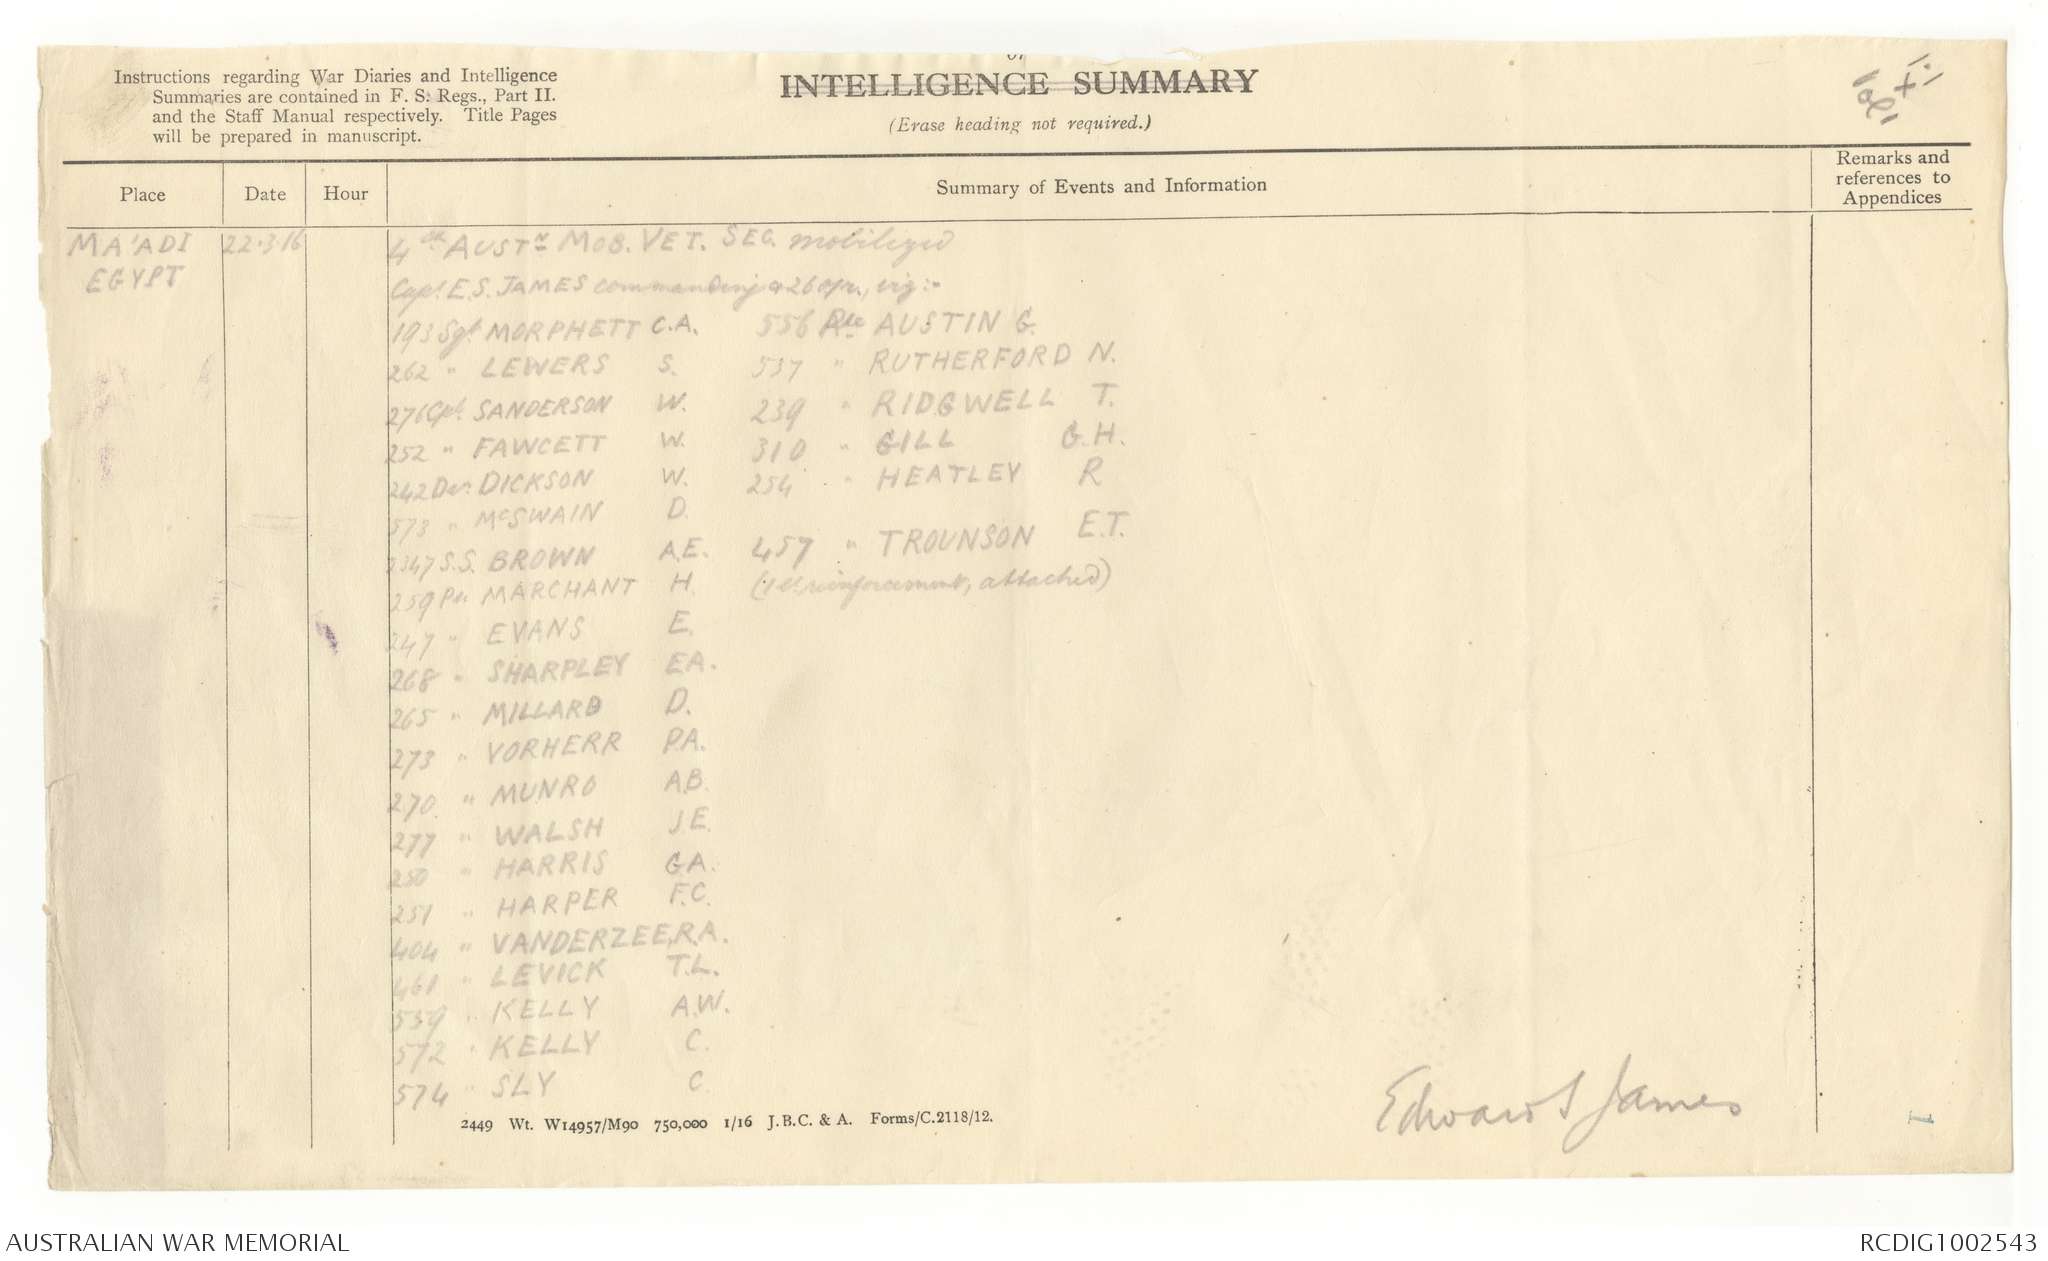 Instructions regarding War Diaries and Intelligence
Summaries are contained in F. S. Regs., Part II.
and the Staff Manual respectively. Title Pages
will be prepared in manuscript.
or
INTELLIGENCE SUMMARY
(Erase heading not required.)
Place Date Hour Summary of Events and Information Remarks and references to Appendices
MA'ADI EGYPT 22.3.16 4th AUSTN MOB. VET. SEC. mobilized
Capt. E.S. JAMES commanding & 26 o/r., viz:-
193 Sgt MORPHETT C.A. 556 Pte AUSTIN G.
262 " LEWERS S. 537 " RUTHERFORD N.
276 Cpl. SANDERSON W. 239 " RIDGWELL T.
252 " FAWCETT W. 310 " GILL G.H.
242 Dvr DICKSON W. 254 " HEATLEY R
573 " McSWAIN D.
2347 S.S. BROWN A.E. 457 " TROUNSON E.T.
259 Pte MARCHANT H. (1st reinforcement, attached)
247 " EVANS E.
268 " SHARPLEY E.A.
265 " MILLARD D.
273 " VORHERR P.A.
270 " MUNRO A.B.
277 " WALSH J.E.
250 " HARRIS G.A.
251 " HARPER F.C.
404 " VANDERZEE, R.A.
461 " LEVICK T.L.
559 " KELLY A.W.
572 " KELLY C.
574 " SLY C.
Edward S James
2449 Wt. W14957/M90 750,000 1/16 J.B.C. & A. Forms/C.2118/12.
1
AUSTRALIAN WAR MEMORIAL RCDIG1002543